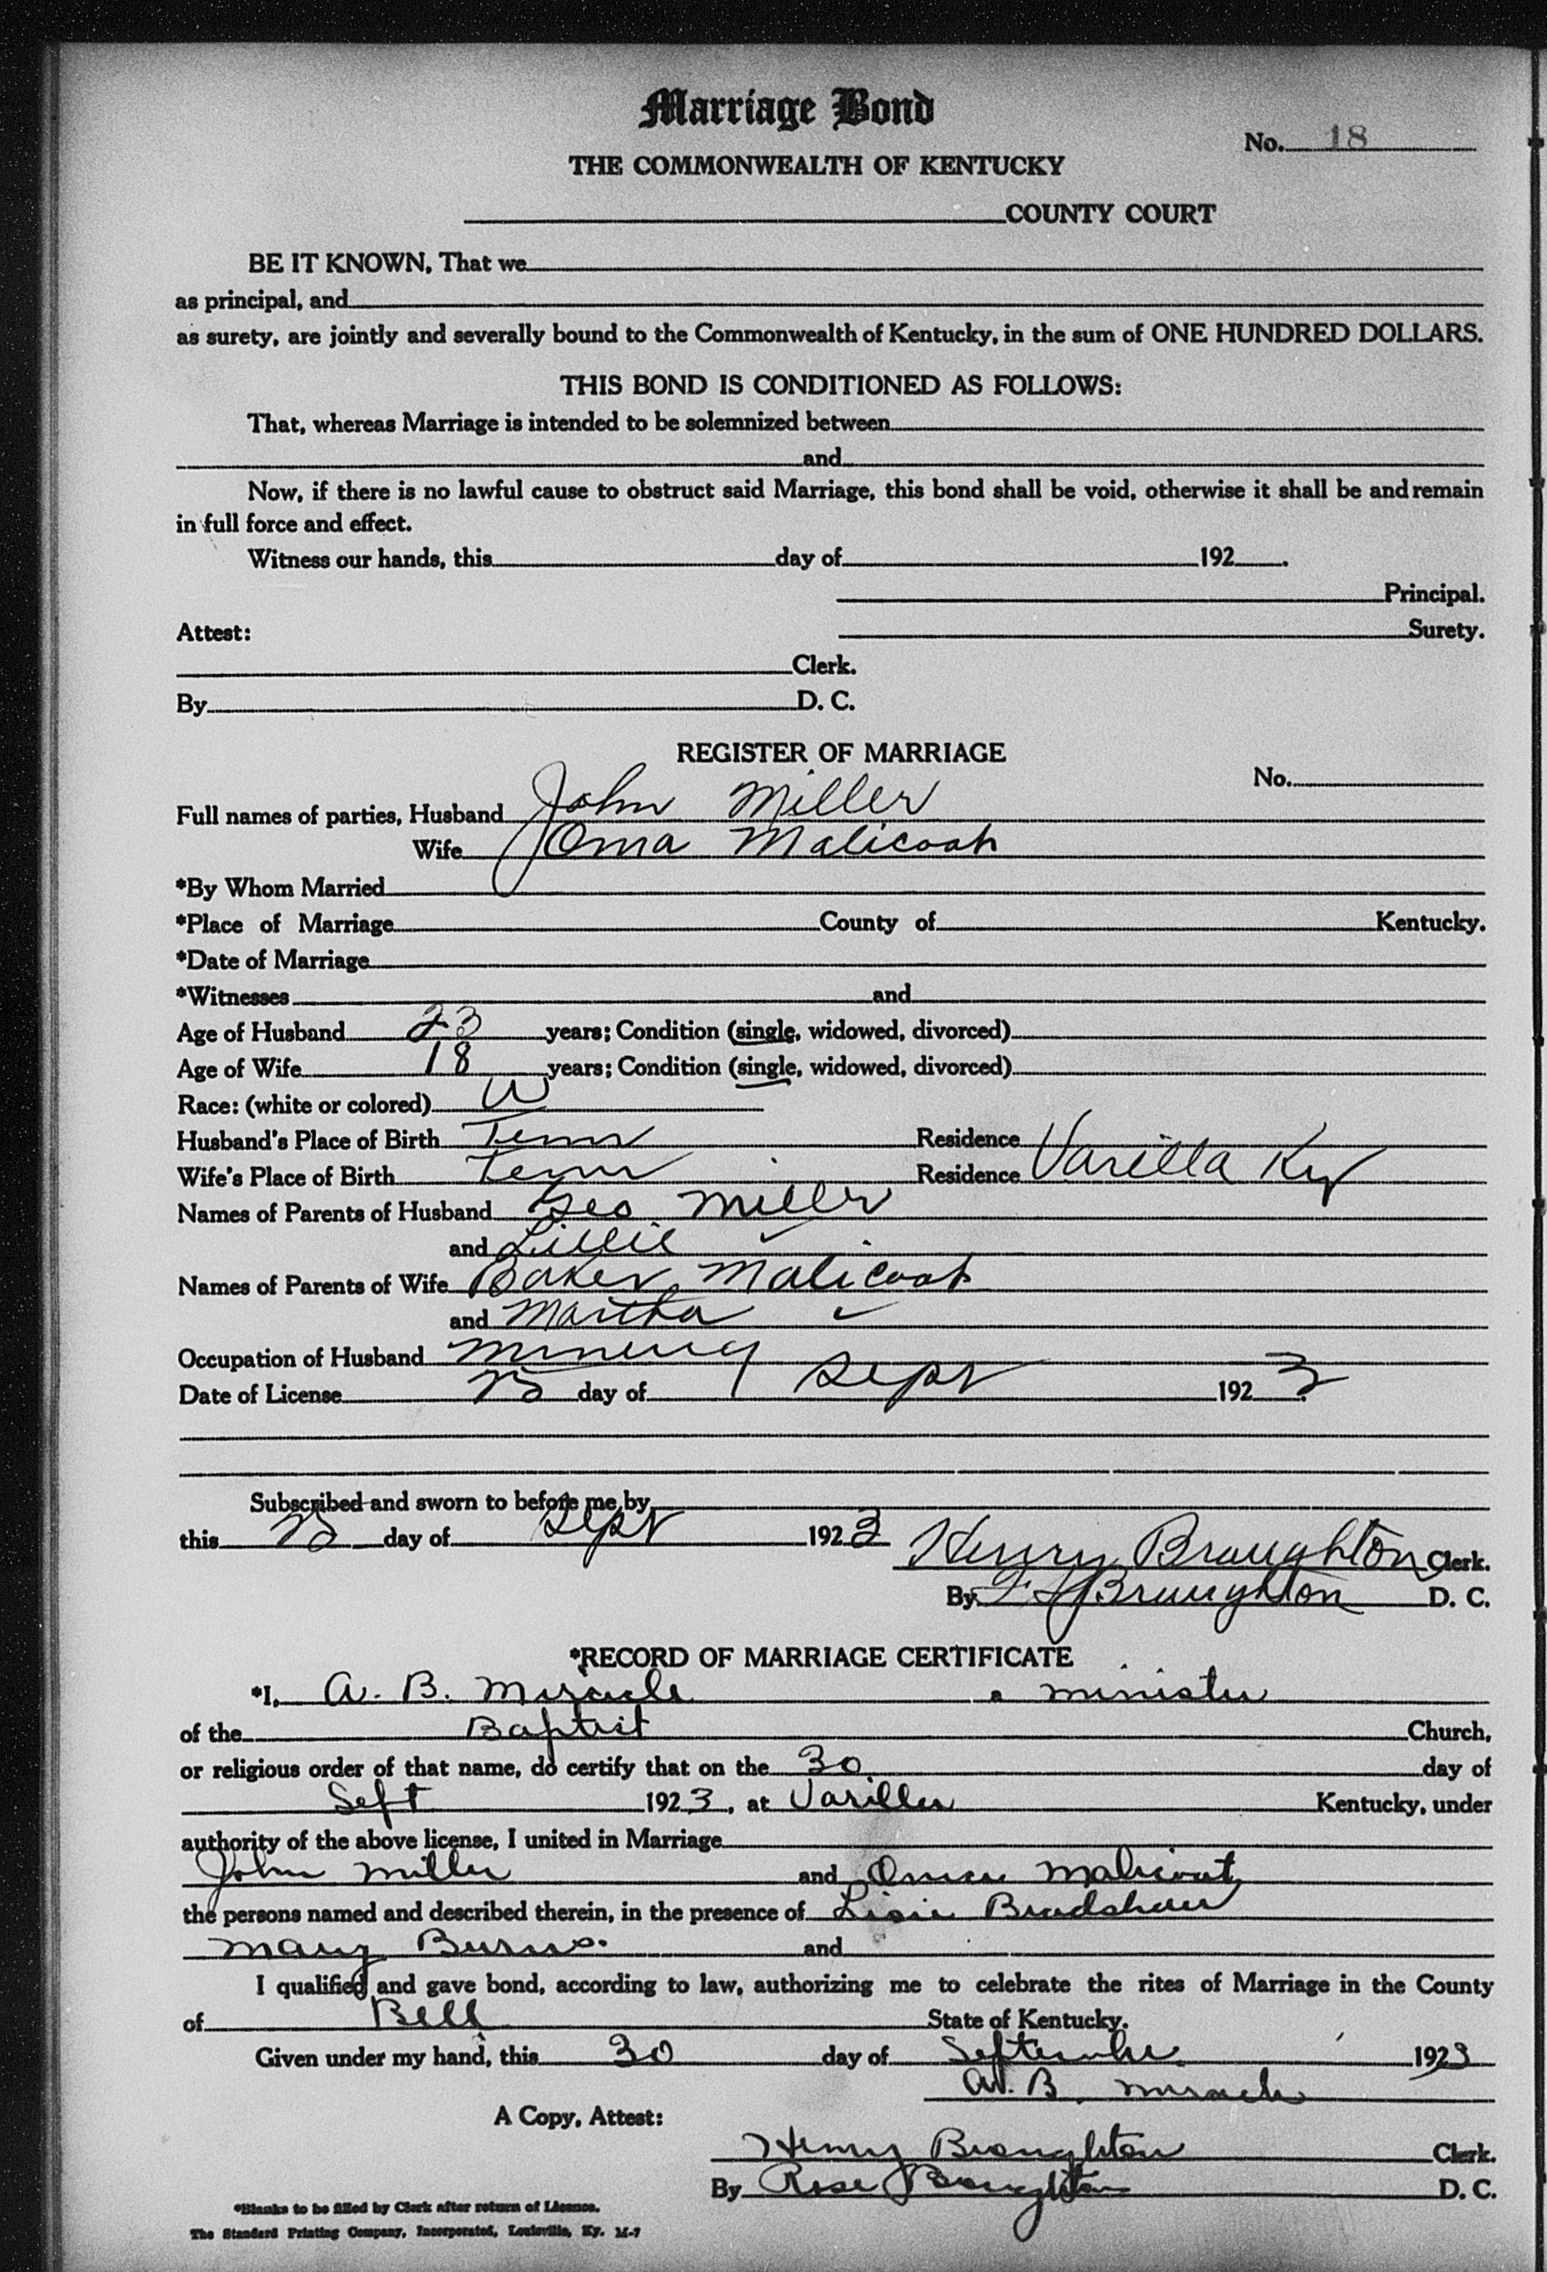 Marriage Bond
No. 18
THE COMMONWEALTH OF KENTUCKY
COUNTY COURT
BE IT KNOWN, That we
as principal, and
as surety, are jointly and severally bound to the Commonwealth of Kentucky, in the sum of ONE HUNDRED DOLLARS.
THIS BOND IS CONDITIONED AS FOLLOWS:
That, whereas Marriage is intended to be solemnized between
and
Now, if there is no lawful cause to obstruct said Marriage, this bond shall be void, otherwise it shall be and remain
in full force and effect.
Witness our hands, this day of 192 .
Principal.
Attest: Surety.
Clerk.
By D. C.
REGISTER OF MARRIAGE
No.
Full names of parties, Husband John Miller
Wife Oma Malicoat
*By Whom Married
*Place of Marriage County of Kentucky.
*Date of Marriage
*Witnesses and
Age of Husband 23 years; Condition (single, widowed, divorced)
Age of Wife 18 years; Condition (single, widowed, divorced)
Race: (white or colored) W
Husband's Place of Birth Tenn Residence
Wife's Place of Birth Tenn Residence Varilla Ky
Names of Parents of Husband Geo Miller
and Lillie ✓
Names of Parents of Wife Baker Malicoat
and Martha ✓
Occupation of Husband Mining
Date of License day of Sept 1923.
Subscribed and sworn to before me by
this day of Sept 1923 Henry Broughton Clerk.
By Broughton D. C.
*RECORD OF MARRIAGE CERTIFICATE
*I, A. B. Miracle a minister
of the Baptist Church,
or religious order of that name, do certify that on the 30 day of
Sept 1923, at Varilla Kentucky, under
authority of the above license, I united in Marriage
John Miller and Oma Malicoat
the persons named and described therein, in the presence of Bradshaw
Mary Burns. and
I qualified and gave bond, according to law, authorizing me to celebrate the rites of Marriage in the County
of Bell State of Kentucky.
Given under my hand, this 30 day of September 1923
A. B. Miracle
A Copy, Attest:
Henry Broughton Clerk.
By Rose Broughton D. C.
*Blanks to be filled by Clerk after return of License.
The Standard Printing Company, Incorporated, Louisville, Ky. M-7